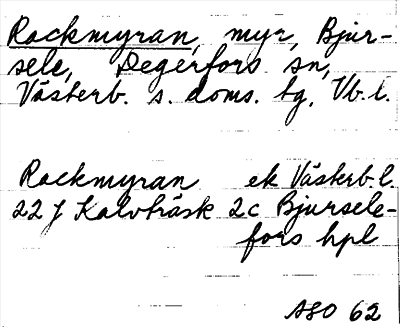 Rackmyran, myr, Bjur-
sele, Degerfors sn,
Västerb. s. doms. tg, Vb.l.
Rackmyran ek Västerb.l.
22 J Kalvträsk 2c Bjursele-
fors hpl
ASO 62